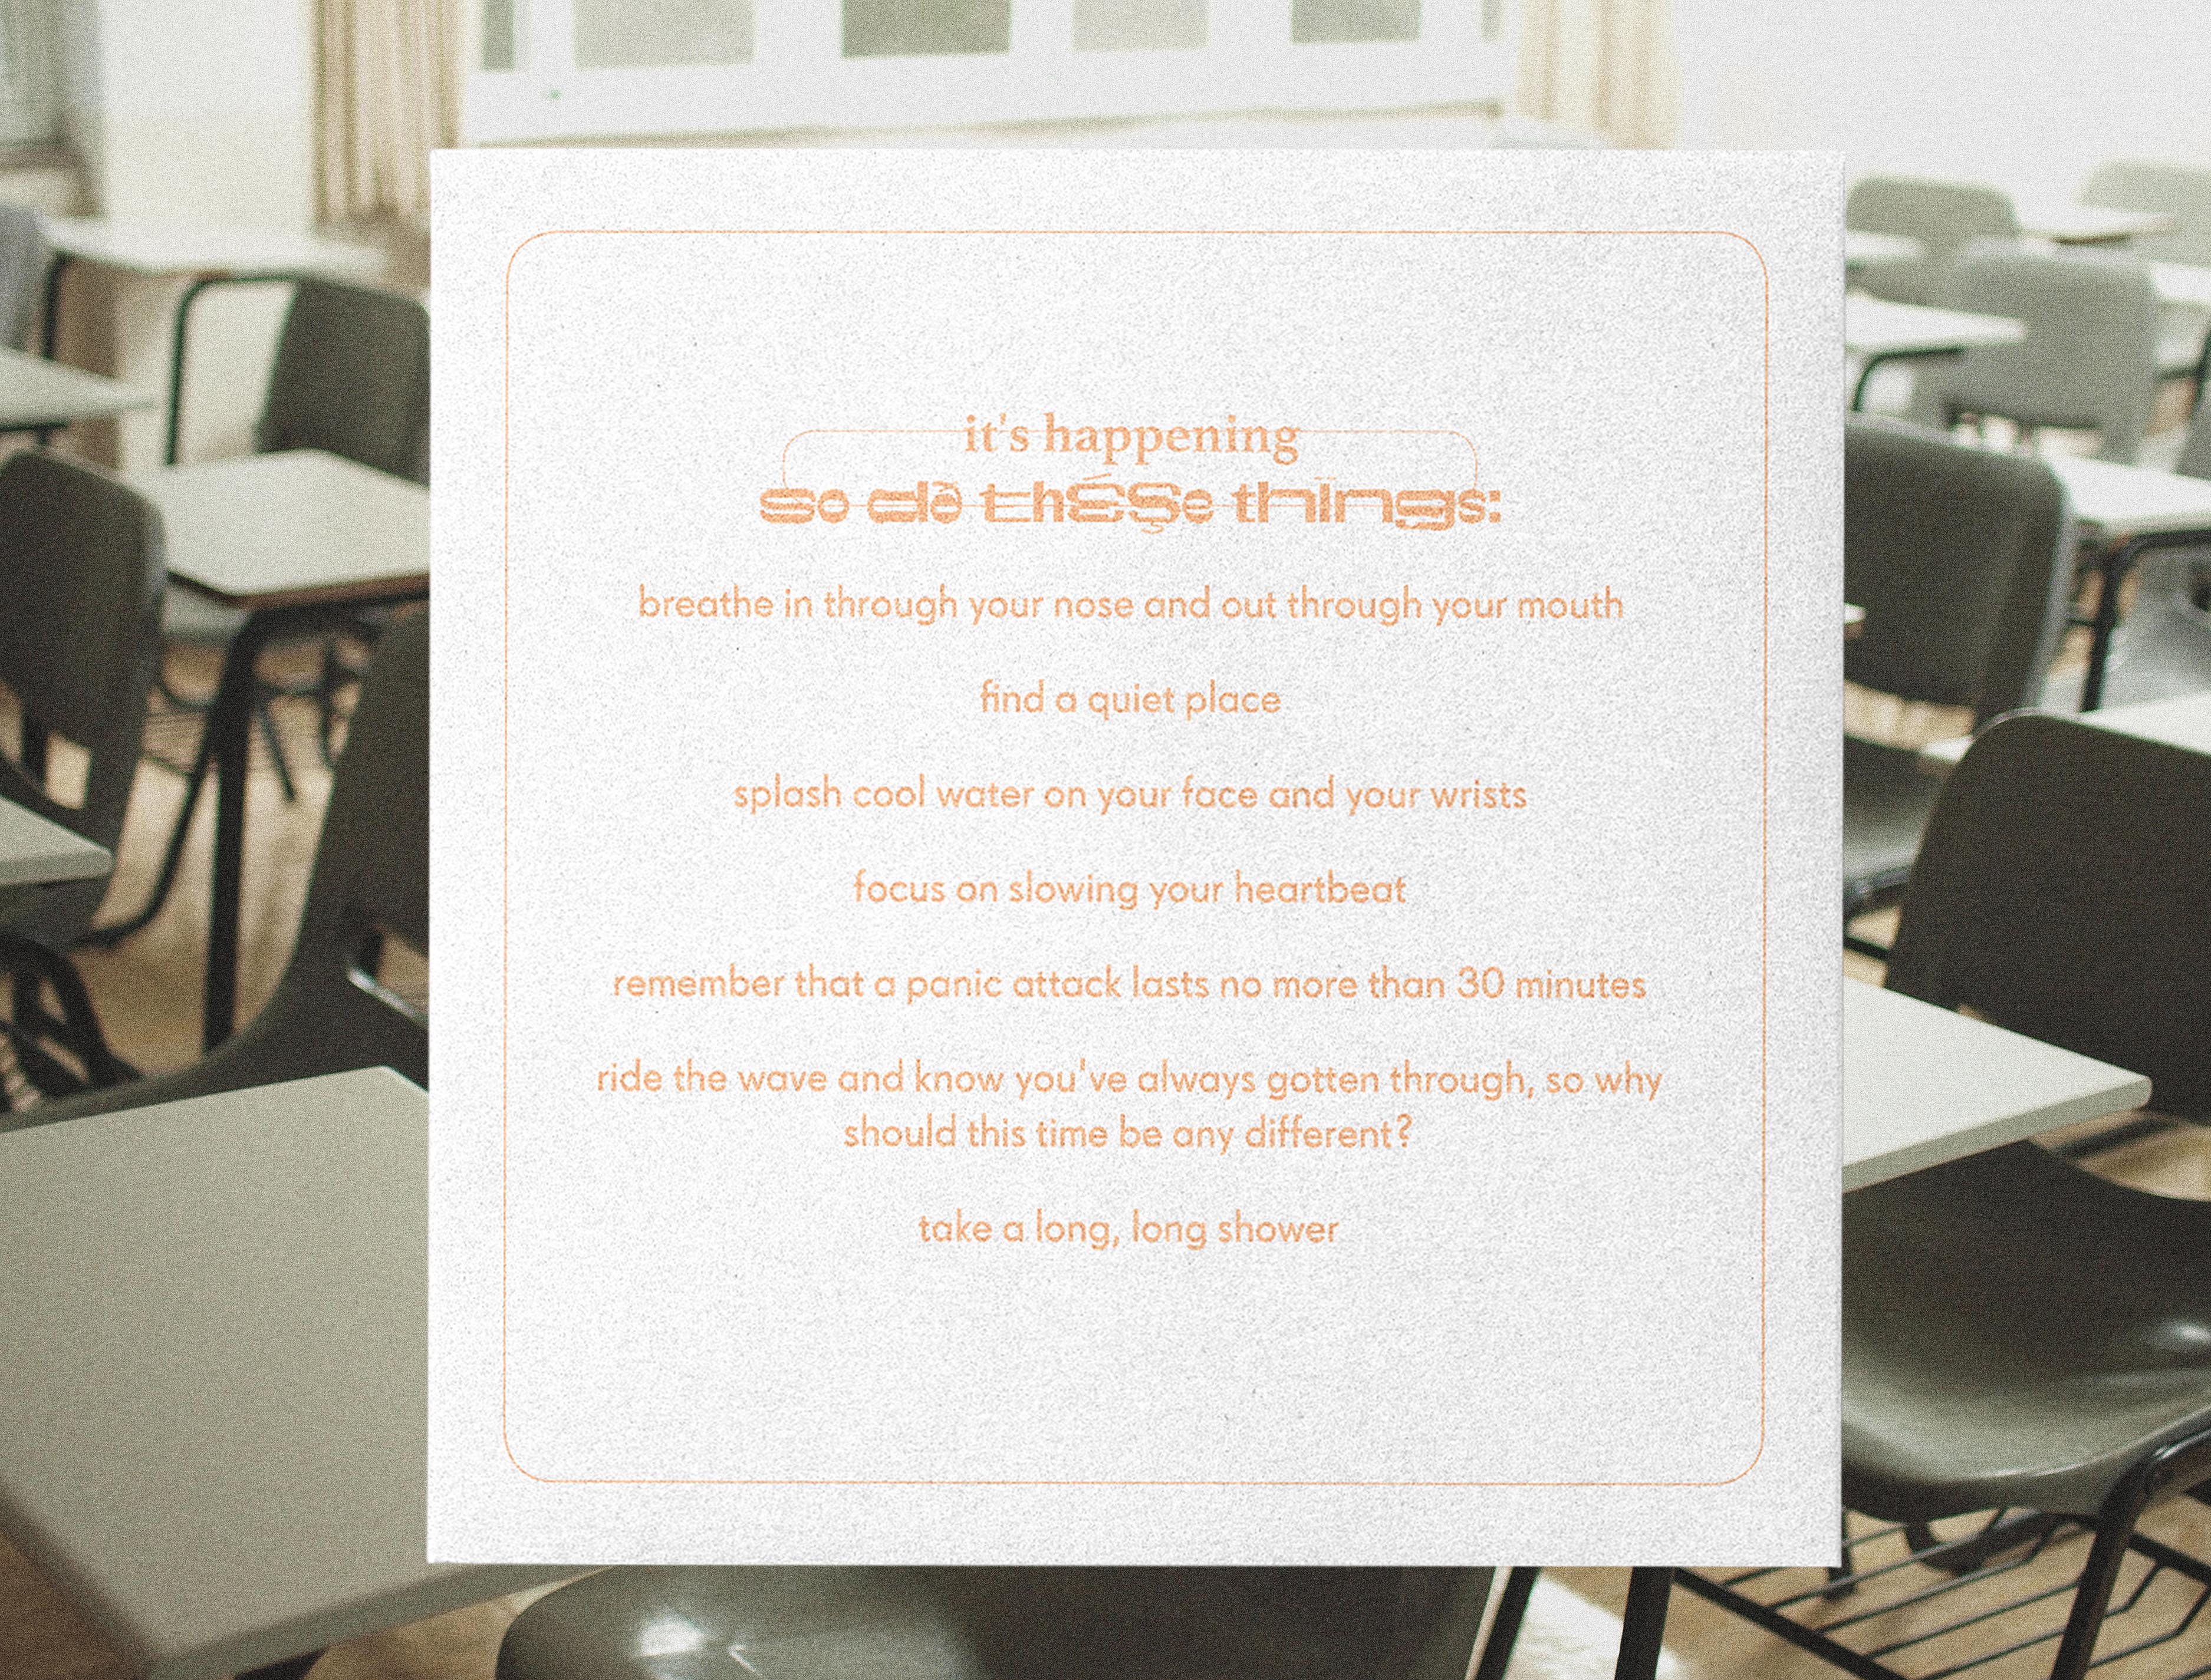 it's happening
so dò thÉŞe thïngs:
breathe in through your nose and out through your mouth
find a quiet place
splash cool water on your face and your wrists
focus on slowing your heartbeat
remember that a panic attack lasts no more than 30 minutes
ride the wave and know you've always gotten through, so why
should this time be any different?
take a long, long shower